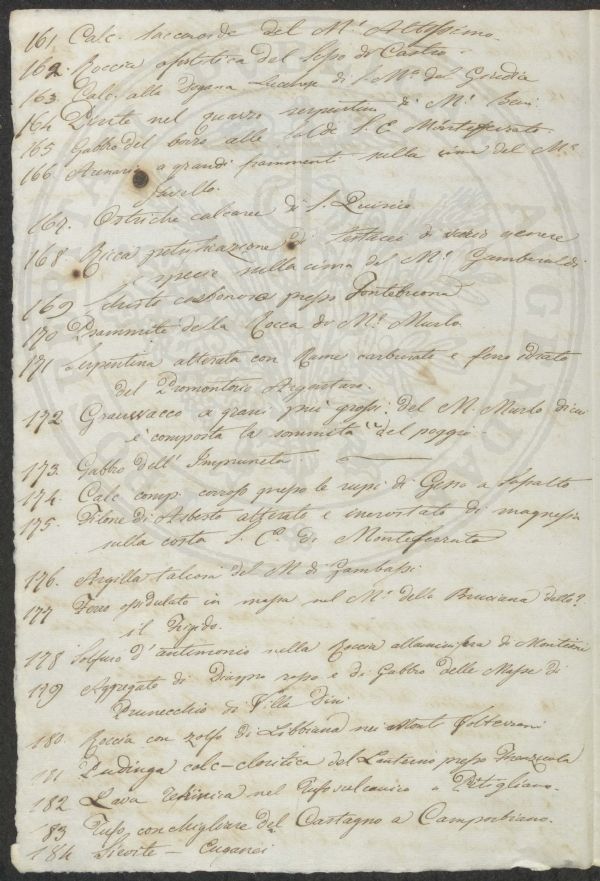 161 Calc. saccaroide del M.e Altissimo.
162. Roccia ofiolitica del Sasso di Castro.
163. Calc. alla Dogana di S. M.a del Giudice
164 Diorite nel quarzo serpentin. di M.e
165 Gabbro del al S. E. Monteferrato.
166 Arenaria a grandi frammenti nella cima del M.e
Javello.
167. Ostriche calcaree di S. Quirico
168. Ricca petrificazione di Testacei di vario genere
e specie sulla cima del M.e Gamberaldi
169 Schisto carbonoso presso Fontebuona
170 Psammite della Rocca di M.e Murlo.
171 Serpentina alterata con Rame carbonato e ferro idrato
del Promontorio Argentaro.
172 Grauwacco a grani più grossi del M. Murlo di cui
è composta la sommità del poggio.
173. Gabbro dell' Impruneta
174. Calc. comp. corroso presso le rupi di Gesso a Sassalto
175. Filone di Asbesto alterato e incrostato di magnesia
sulla costa S. E. di Monteferrato
176. Argilla talcosa del M. di Gambassi
177 Ferro ossidulato in massa nel M.e della Bruciana detto?
il
178 Solfuro d'antimonio nella Roccia alluminifera di Montioni
179 Aggregato di Diaspro rosso e di Gabbro delle Masse di
Prunecchio di Villa Dini
180. Roccia con zolfo di Libbiana nei Monti Volterrani
181 Pudinga calc-cloritica del presso Firenzuola
182 Lava nel Tufo vulcanico a Pitigliano.
183 Tufo conchigliare del Castagno a Camporbiano.
184 – Euganei